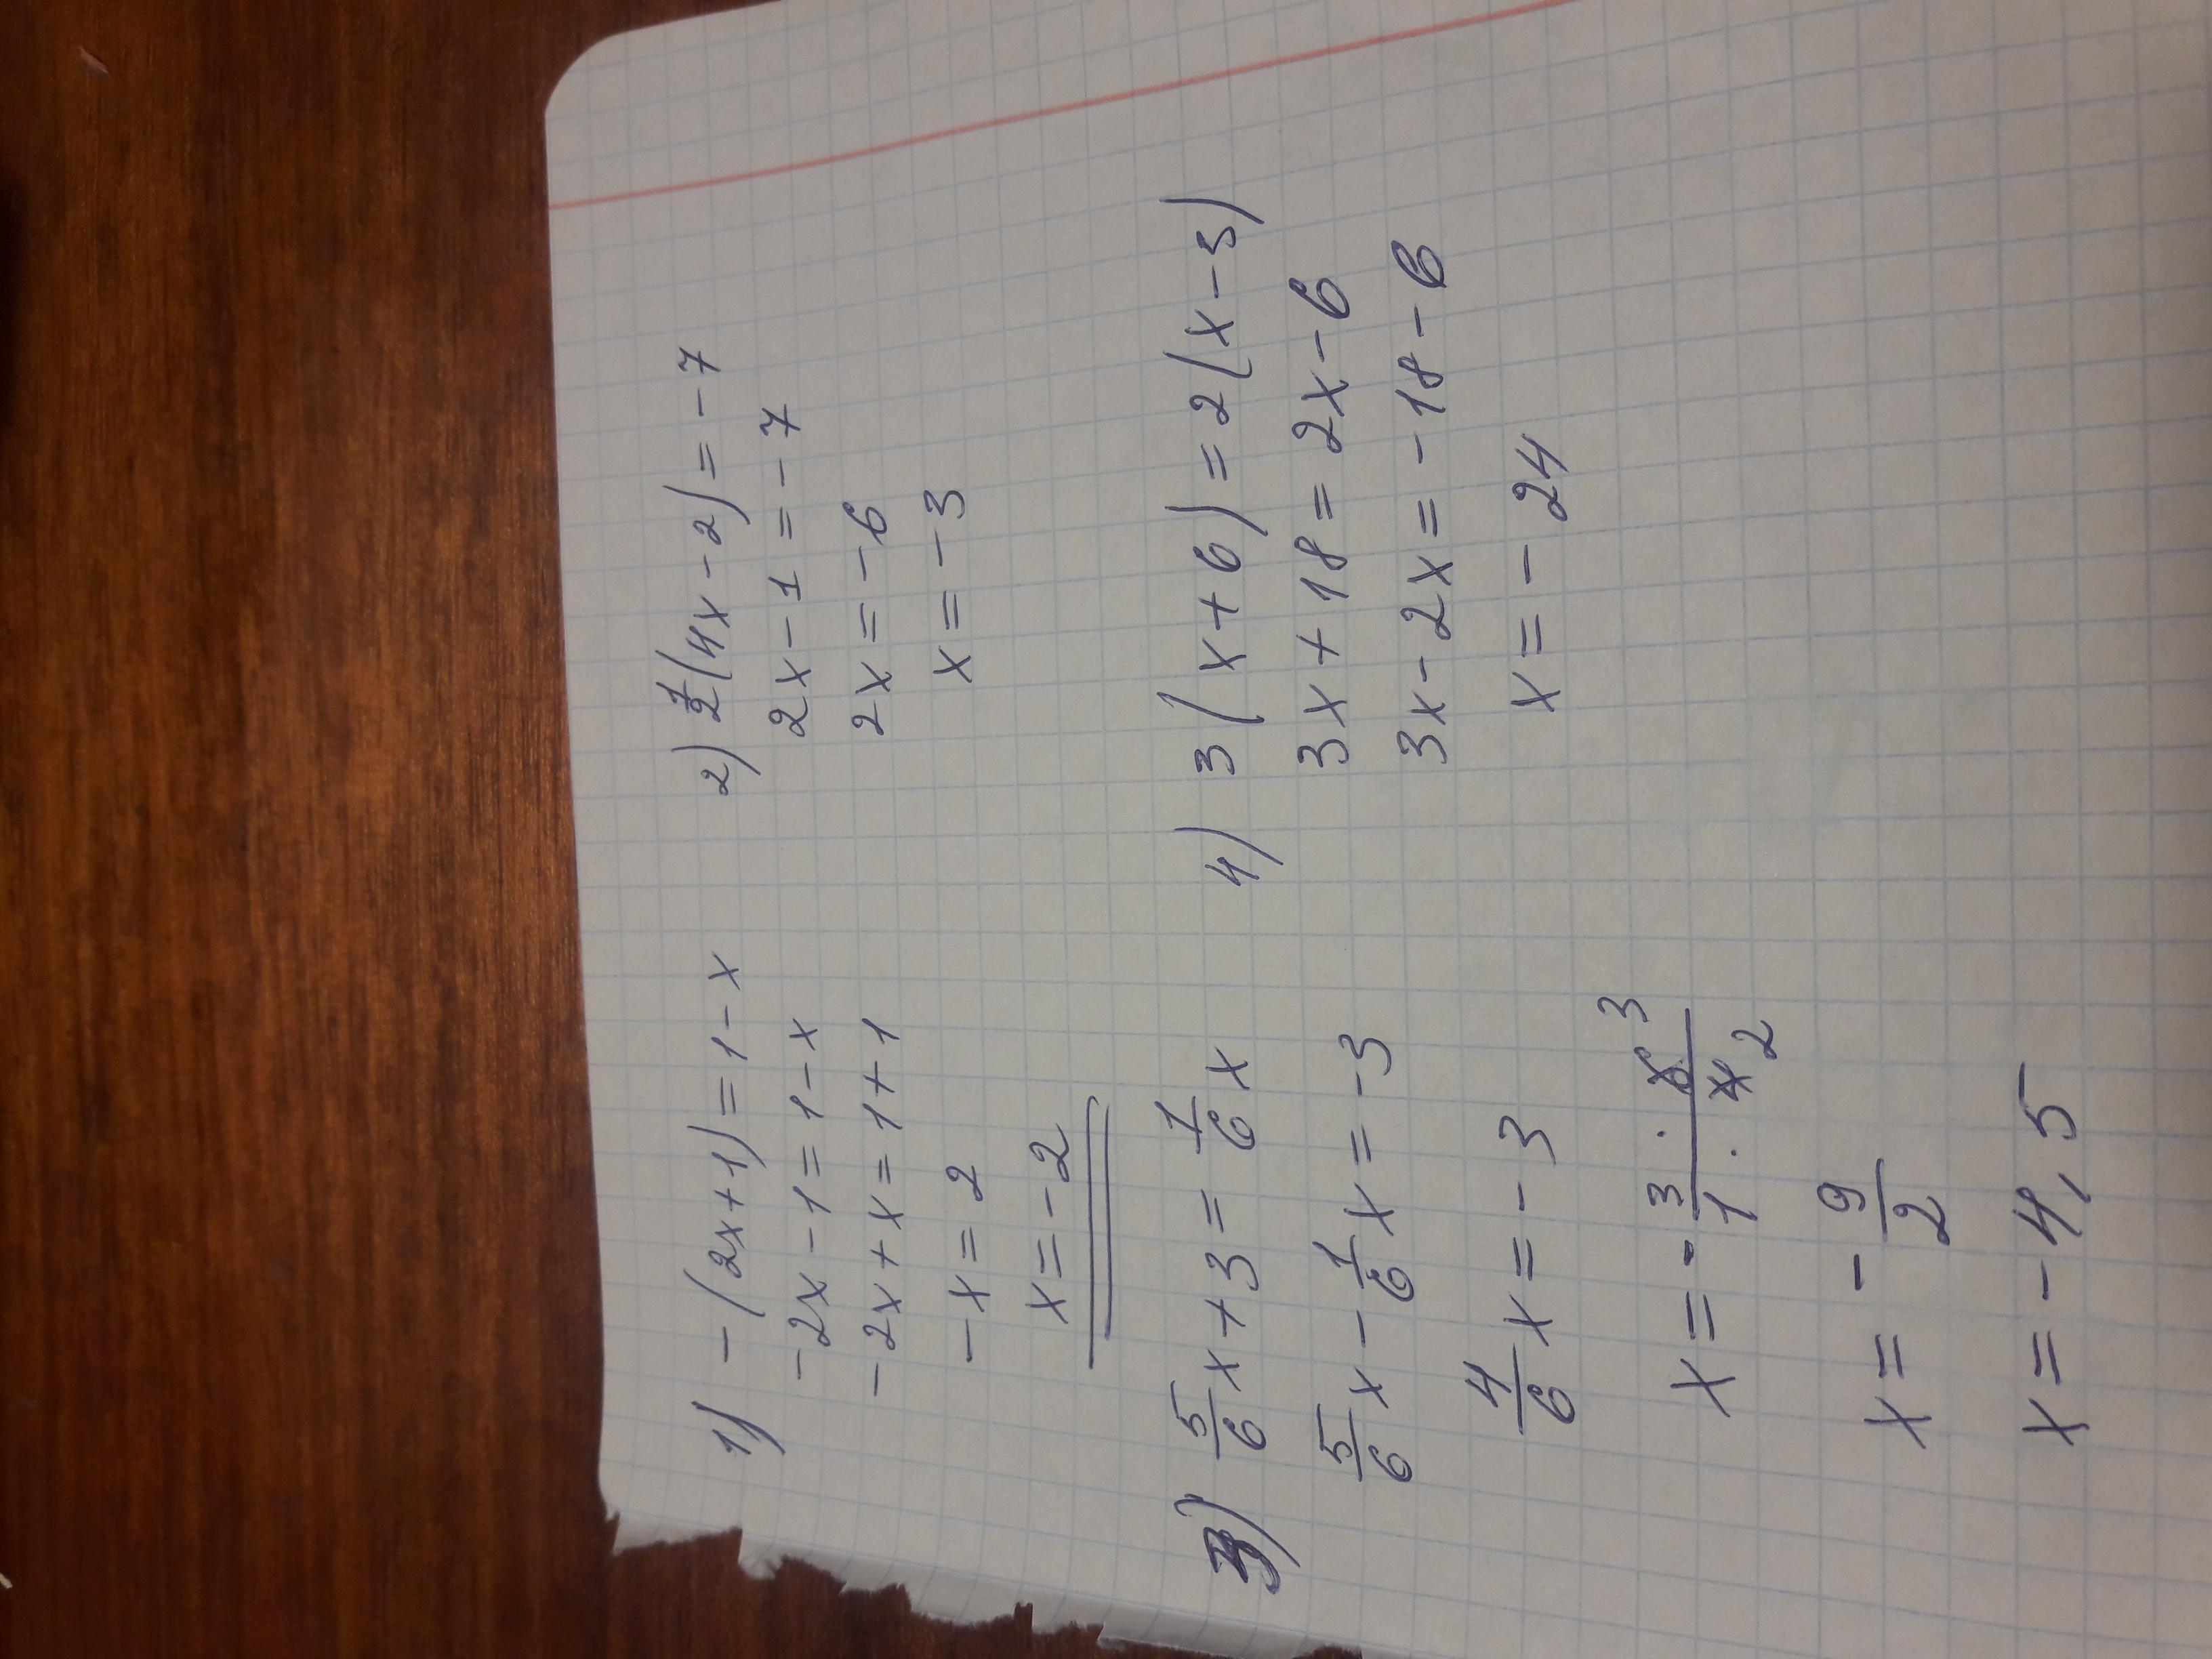 1) -(2x+1)=1-x
-2x-1=1-x
-2x+x=1+1
-x=2
x=-2
2) 1/2(4x-2)=-7
2x-1=-7
2x=-6
x=-3
3) 5/6x+3=1/6x
5/6x-1/6x=-3
4/6x=-3
x=-3·6 3/1·4 2
x=-9/2
x=-4,5
4) 3(x+6)=2(x-3)
3x+18=2x-6
3x-2x=-18-6
x=-24